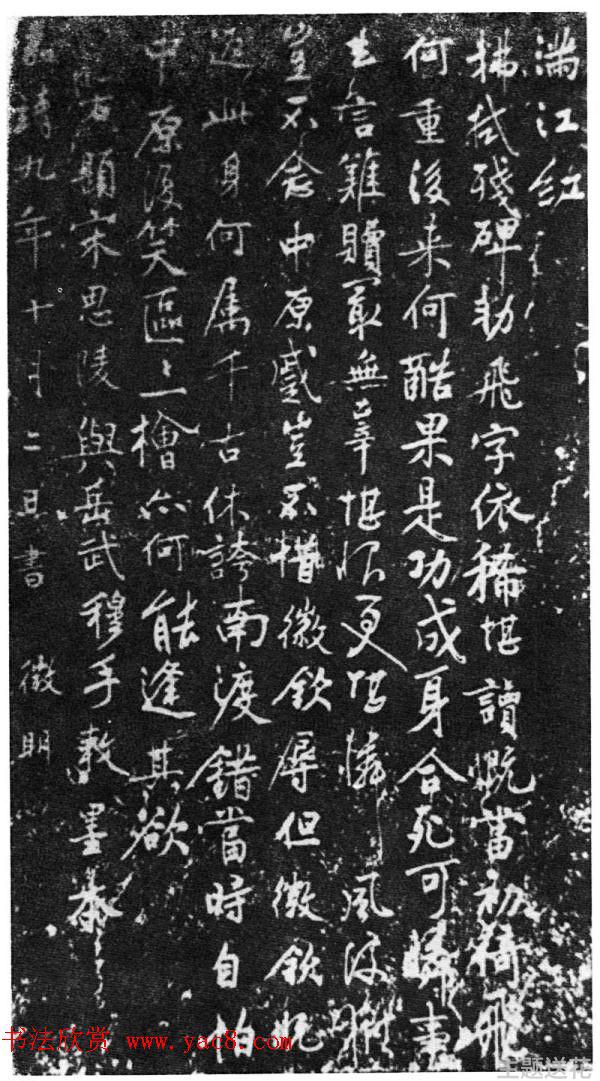 滿江紅
拂拭殘碑勅飛字依稀堪讀慨當初倚飛
何重後来何酷果是功成身合死可憐事
去言難贖最無辜堪恨更堪憐風波獄
豈不念中原蹙豈不惜徽欽辱但徽欽既
返此身何属千古休誇南渡錯當時自怕
中原復笑區〻一檜亦何能逢其欲
右題宋思陵與岳武穆手敕墨
嘉靖九年十月二日書 徵明
书法欣赏 www.yac8.com
主题送花